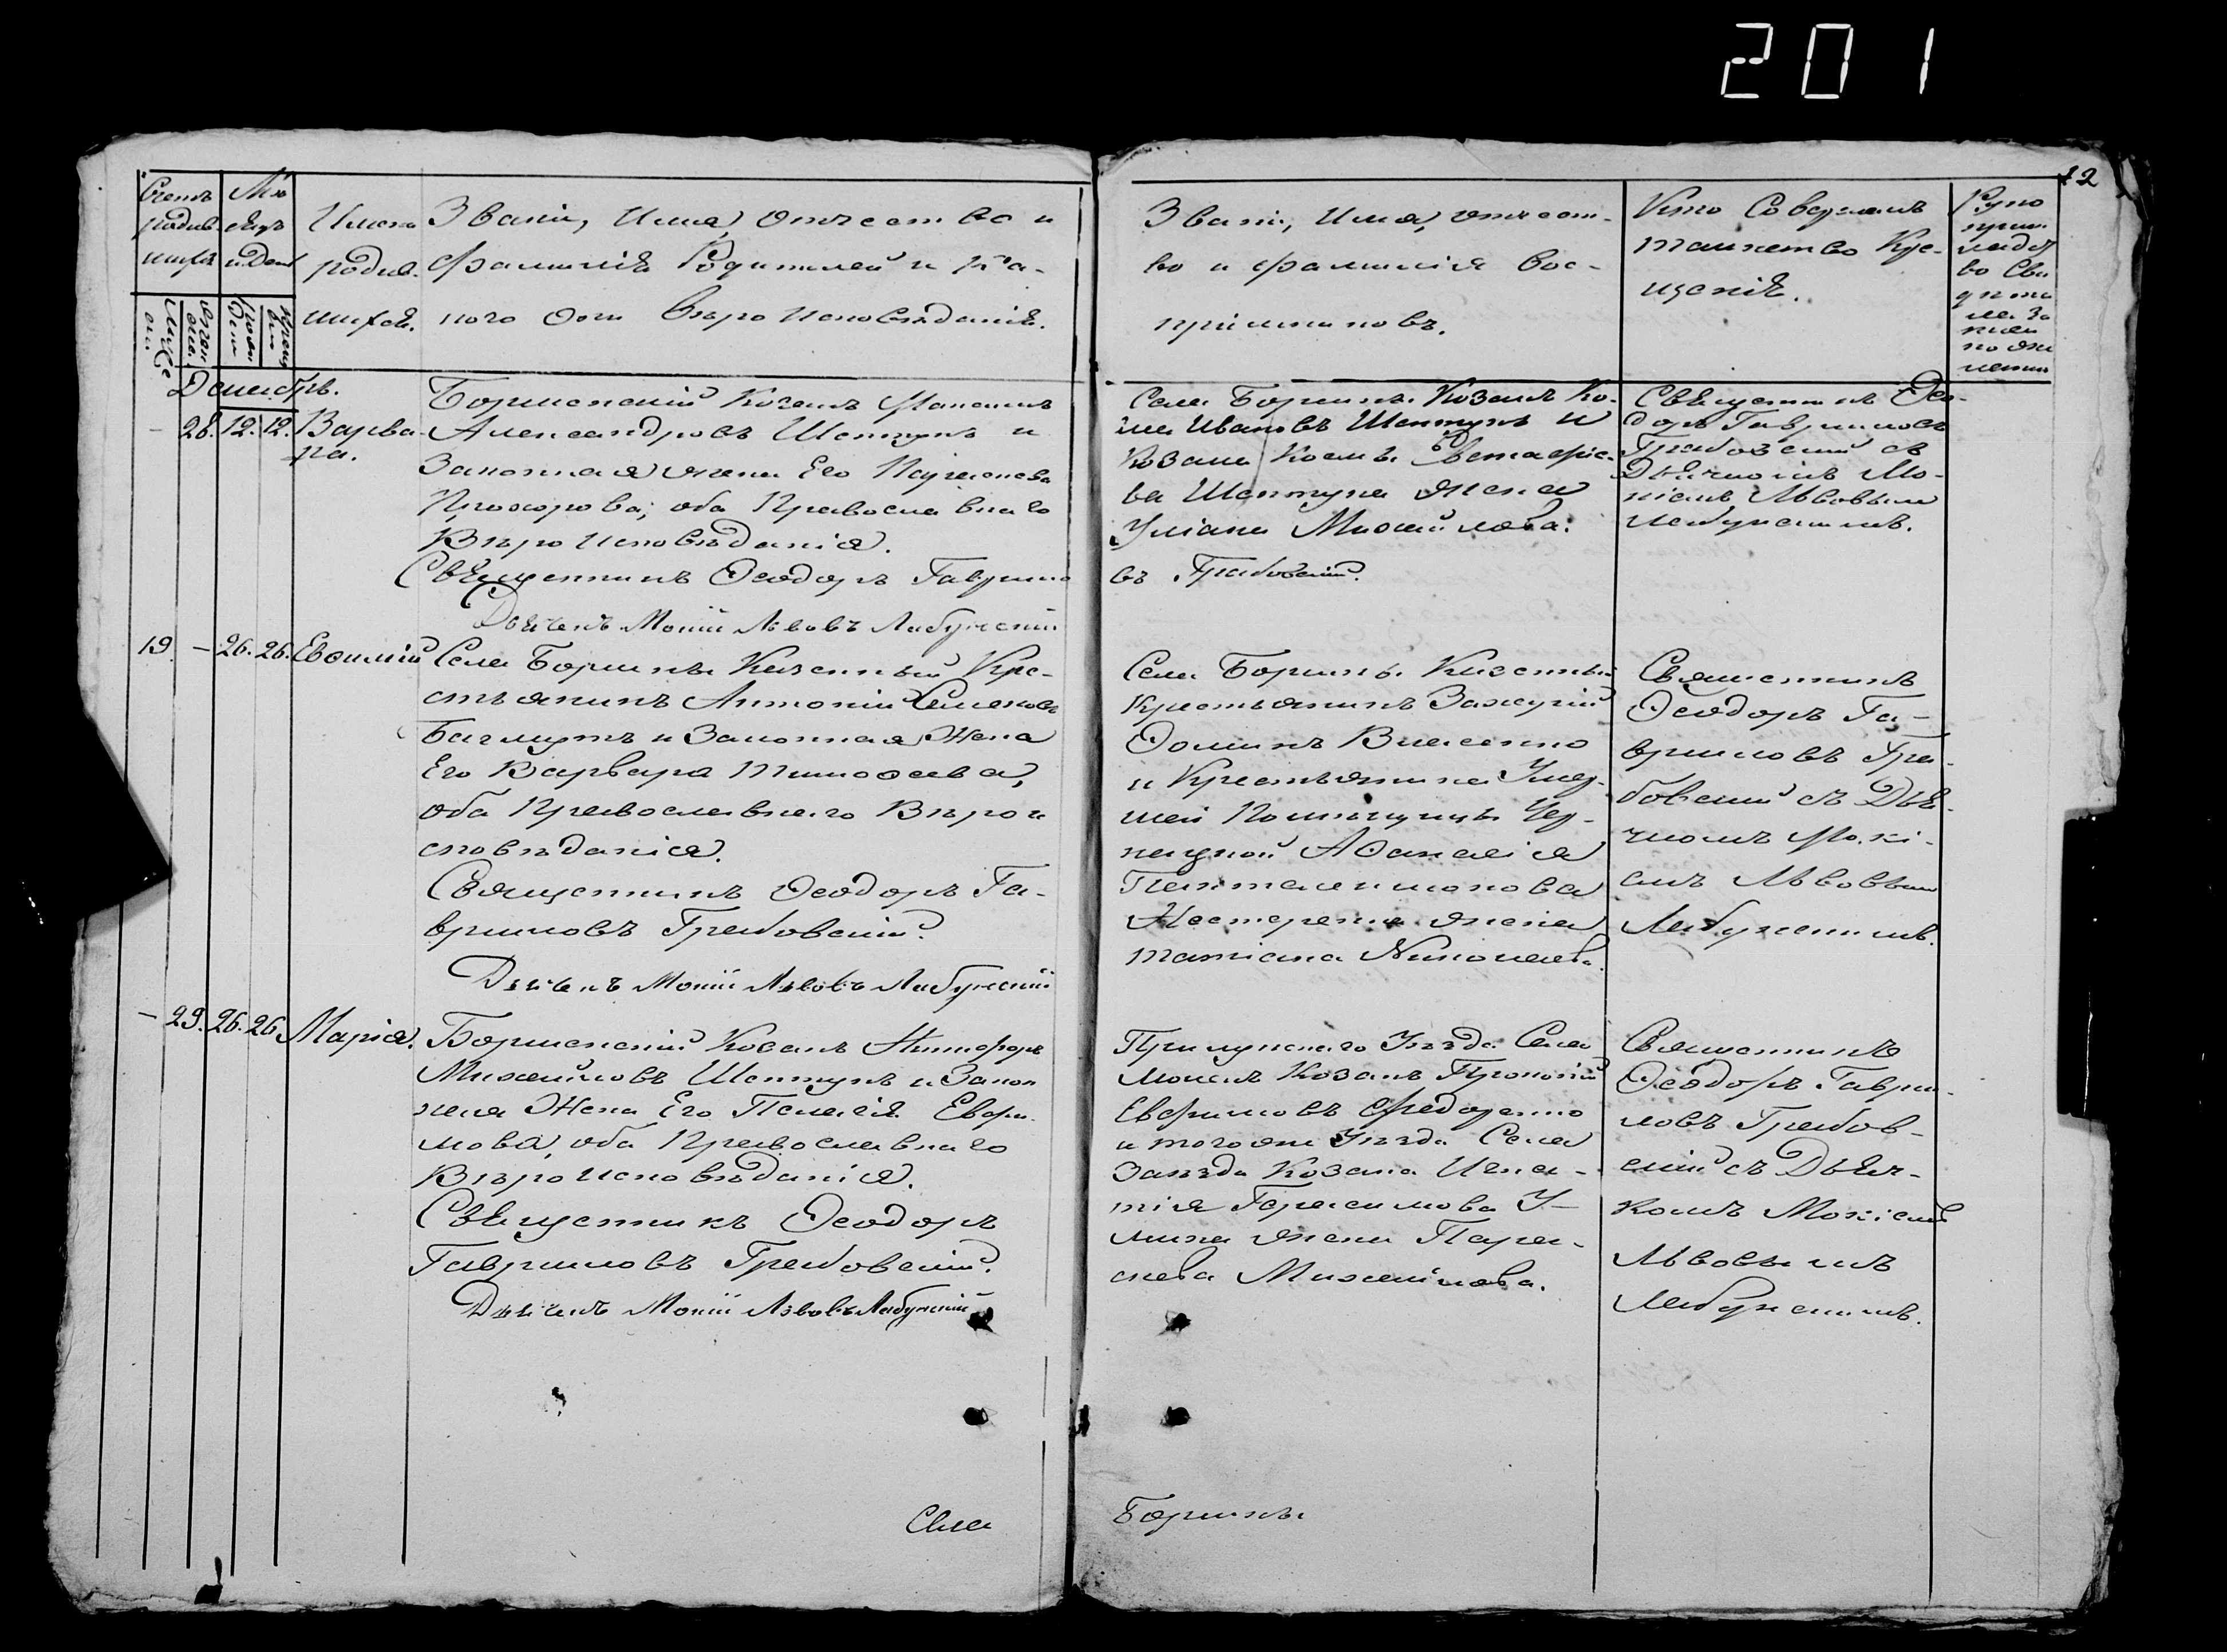 201
12
Счетъ
родив
шихся
Мѣ
сяцъ
и День
Имена
родив-
шихся.
Званіе, Имя, Отчество и
Фамилія Родителей и Ка-
кого они Вѣроисповѣданія.
Званіе, Имя, отчест-
во и фамилія Вос-
пріемниковъ.
Кто Совершалъ
таинство Кре-
щенія.
Руко
прик
ладст
во Сви
дѣте
лей За
писи
по же
ланію
Декабрь.
– 28. 12. 12. Варва-
ра.
Борменскій Козакъ
Александровъ Шептунъ и
Законная жена Его
Прохорова; оба Православнаго
Вѣроисповѣданія.
Священникъ Ѳеодоръ Гаврило
въ Грабовскій.
Дьячекъ Мокій Львовъ Лабунскій
Села Козакъ Ко-
ма Ивановъ Шептунъ и
Козака Космы Евстафіе-
ва Шептуна жена
Уліана Михайлова.
Священникъ Ѳео-
доръ Гавриловъ
Грабовскій съ
Дьячкомъ Мо-
кіемъ Львовымъ
Лабунскимъ.
19. – 26. 26. Евѳимій
Села Казенный Кре-
стьянинъ Антоній Семеновъ
Багмутъ и Законная Жена
Его Варвара Тимоѳеева,
оба Православнаго Вѣрои
сповѣданія.
Священникъ Ѳеодоръ Га-
вриловъ Грабовскій.
Дьячекъ Мокій Львовъ Лабунскій
Села Казенный
Крестьянинъ Захарій
Ѳоминъ Власенко
и Крестьянина Умер-
шей Помѣщицы
Аѳанасія
Пантелеимонова
Нестеренка жена
Татіана Николаева.
Священникъ
Ѳеодоръ Га-
вриловъ Гра-
бовскій съ Дья-
чкомъ Мокі-
емъ Львовымъ
Лабунскимъ.
– 29. 26. 26. Марія.
Борменскій Козакъ Никифоръ
Михайловъ Шептунъ и Закон
ная Жена Его Пелагія Евфи-
мова, оба Православнаго
Вѣроисповѣданія.
Священникъ Ѳеодоръ
Гавриловъ Грабовскій.
Дьячекъ Мокій Львовъ Лабунскій
Прилуцкаго Уѣзда Села
Козакъ Прокопій
Евфимовъ Федоренко
и того же Уѣзда Села
Заѣзда Козака Игна-
тія Герасимова У-
жена Парас-
кева Михайлова.
Священникъ
Ѳеодоръ Гаври-
ловъ Грабов-
скій съ Дьяч-
комъ Мокіемъ
Львовымъ
Лабунскимъ.
Села